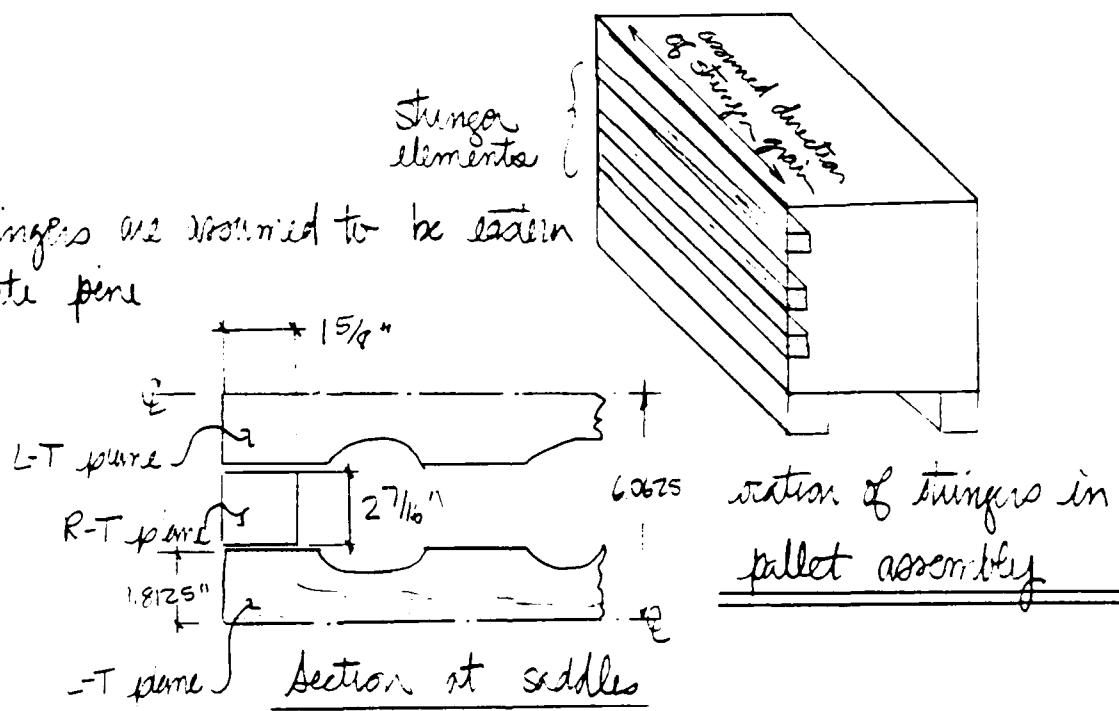 assumed direction
of stringer grain
stringer
elements
ingers are assumed to be eastern
te pine
1 5/8"
℄
L-T plane
R-T plane
2 7/16"
6.0625
1.8125"
℄
-T plane
Section at saddles
ration of stringers in
pallet assembly